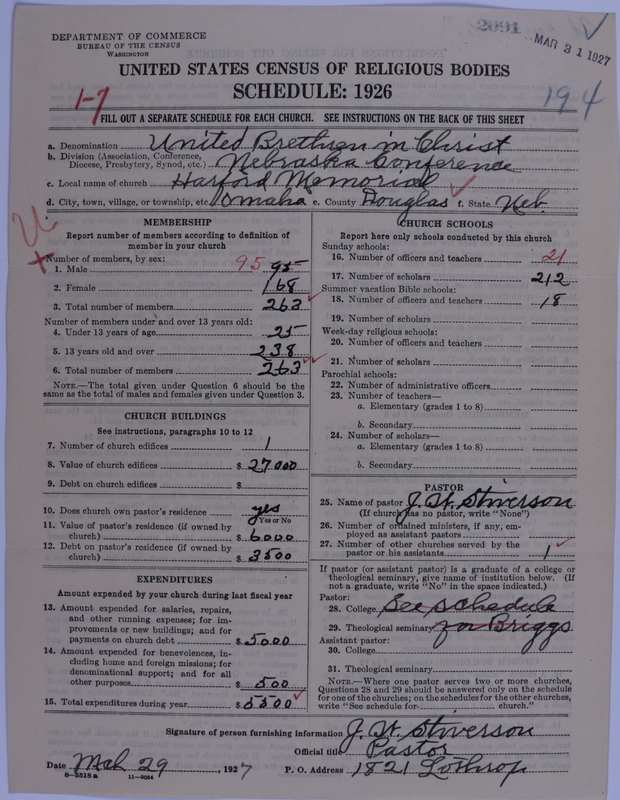 2091
MAR 31 1927
DEPARTMENT OF COMMERCE
BUREAU OF THE CENSUS
WASHINGTON
UNITED STATES CENSUS OF RELIGIOUS BODIES
SCHEDULE: 1926
1-7
194
FILL OUT A SEPARATE SCHEDULE FOR EACH CHURCH. SEE INSTRUCTIONS ON THE BACK OF THIS SHEET
a. Denomination United Brethren in Christ
b. Division (Association, Conference, Diocese, Presbytery, Synod, etc.) Nebraska Conference
c. Local name of church Harford Memorial
d. City, town, village, or township, etc. Omaha e. County Douglas f. State Neb.
MEMBERSHIP
Report number of members according to definition of
member in your church
Number of members, by sex:
1. Male 95 95
2. Female 168
3. Total number of members 263
Number of members under and over 13 years old:
4. Under 13 years of age 25
5. 13 years old and over 238
6. Total number of members 263
NOTE.—The total given under Question 6 should be
same as the total of males and females given under Question 3.
CHURCH BUILDINGS
See instructions, paragraphs 10 to 12
7. Number of church edifices 1
8. Value of church edifices $ 27000
9. Debt on church edifices $
10. Does church own pastor's residence yes
Yes or No
11. Value of pastor's residence (if owned by
church) $ 6000
12. Debt on pastor's residence (if owned by
church) $ 3500
EXPENDITURES
Amount expended by your church during last fiscal year
13. Amount expended for salaries, repairs,
and other running expenses; for im-
provements or new buildings; and for
payments on church debt $ 5000
14. Amount expended for benevolences, in-
cluding home and foreign missions; for
denominational support; and for all
other purposes $ 500
15. Total expenditures during year $ 5500
CHURCH SCHOOLS
Report here only schools conducted by this church
Sunday schools:
16. Number of officers and teachers 21
17. Number of scholars 212
Summer vacation Bible schools:
18. Number of officers and teachers 18
19. Number of scholars
Week-day religious schools:
20. Number of officers and teachers
21. Number of scholars
Parochial schools:
22. Number of administrative officers
23. Number of teachers—
a. Elementary (grades 1 to 8)
b. Secondary
24. Number of scholars—
a. Elementary (grades 1 to 8)
b. Secondary
PASTOR
25. Name of pastor J. W. Stiverson
(If church has no pastor, write "None")
26. Number of ordained ministers, if any, em-
ployed as assistant pastors
27. Number of other churches served by the
pastor or his assistants 1
If pastor (or assistant pastor) is a graduate of a college or
theological seminary, give name of institution below. (If
not a graduate, write "No" in the space indicated.)
Pastor:
28. College See schedule
29. Theological seminary for Briggs
Assistant pastor:
30. College
31. Theological seminary
NOTE.—Where one pastor serves two or more churches,
Questions 28 and 29 should be answered only on the schedule
for one of the churches; on the schedules for the other churches,
write "See schedule for church."
Signature of person furnishing information J. W. Stiverson
Official title Pastor
Date Mch 29, 1927 P. O. Address 1821 Lothrop
8-5515a 11-9034